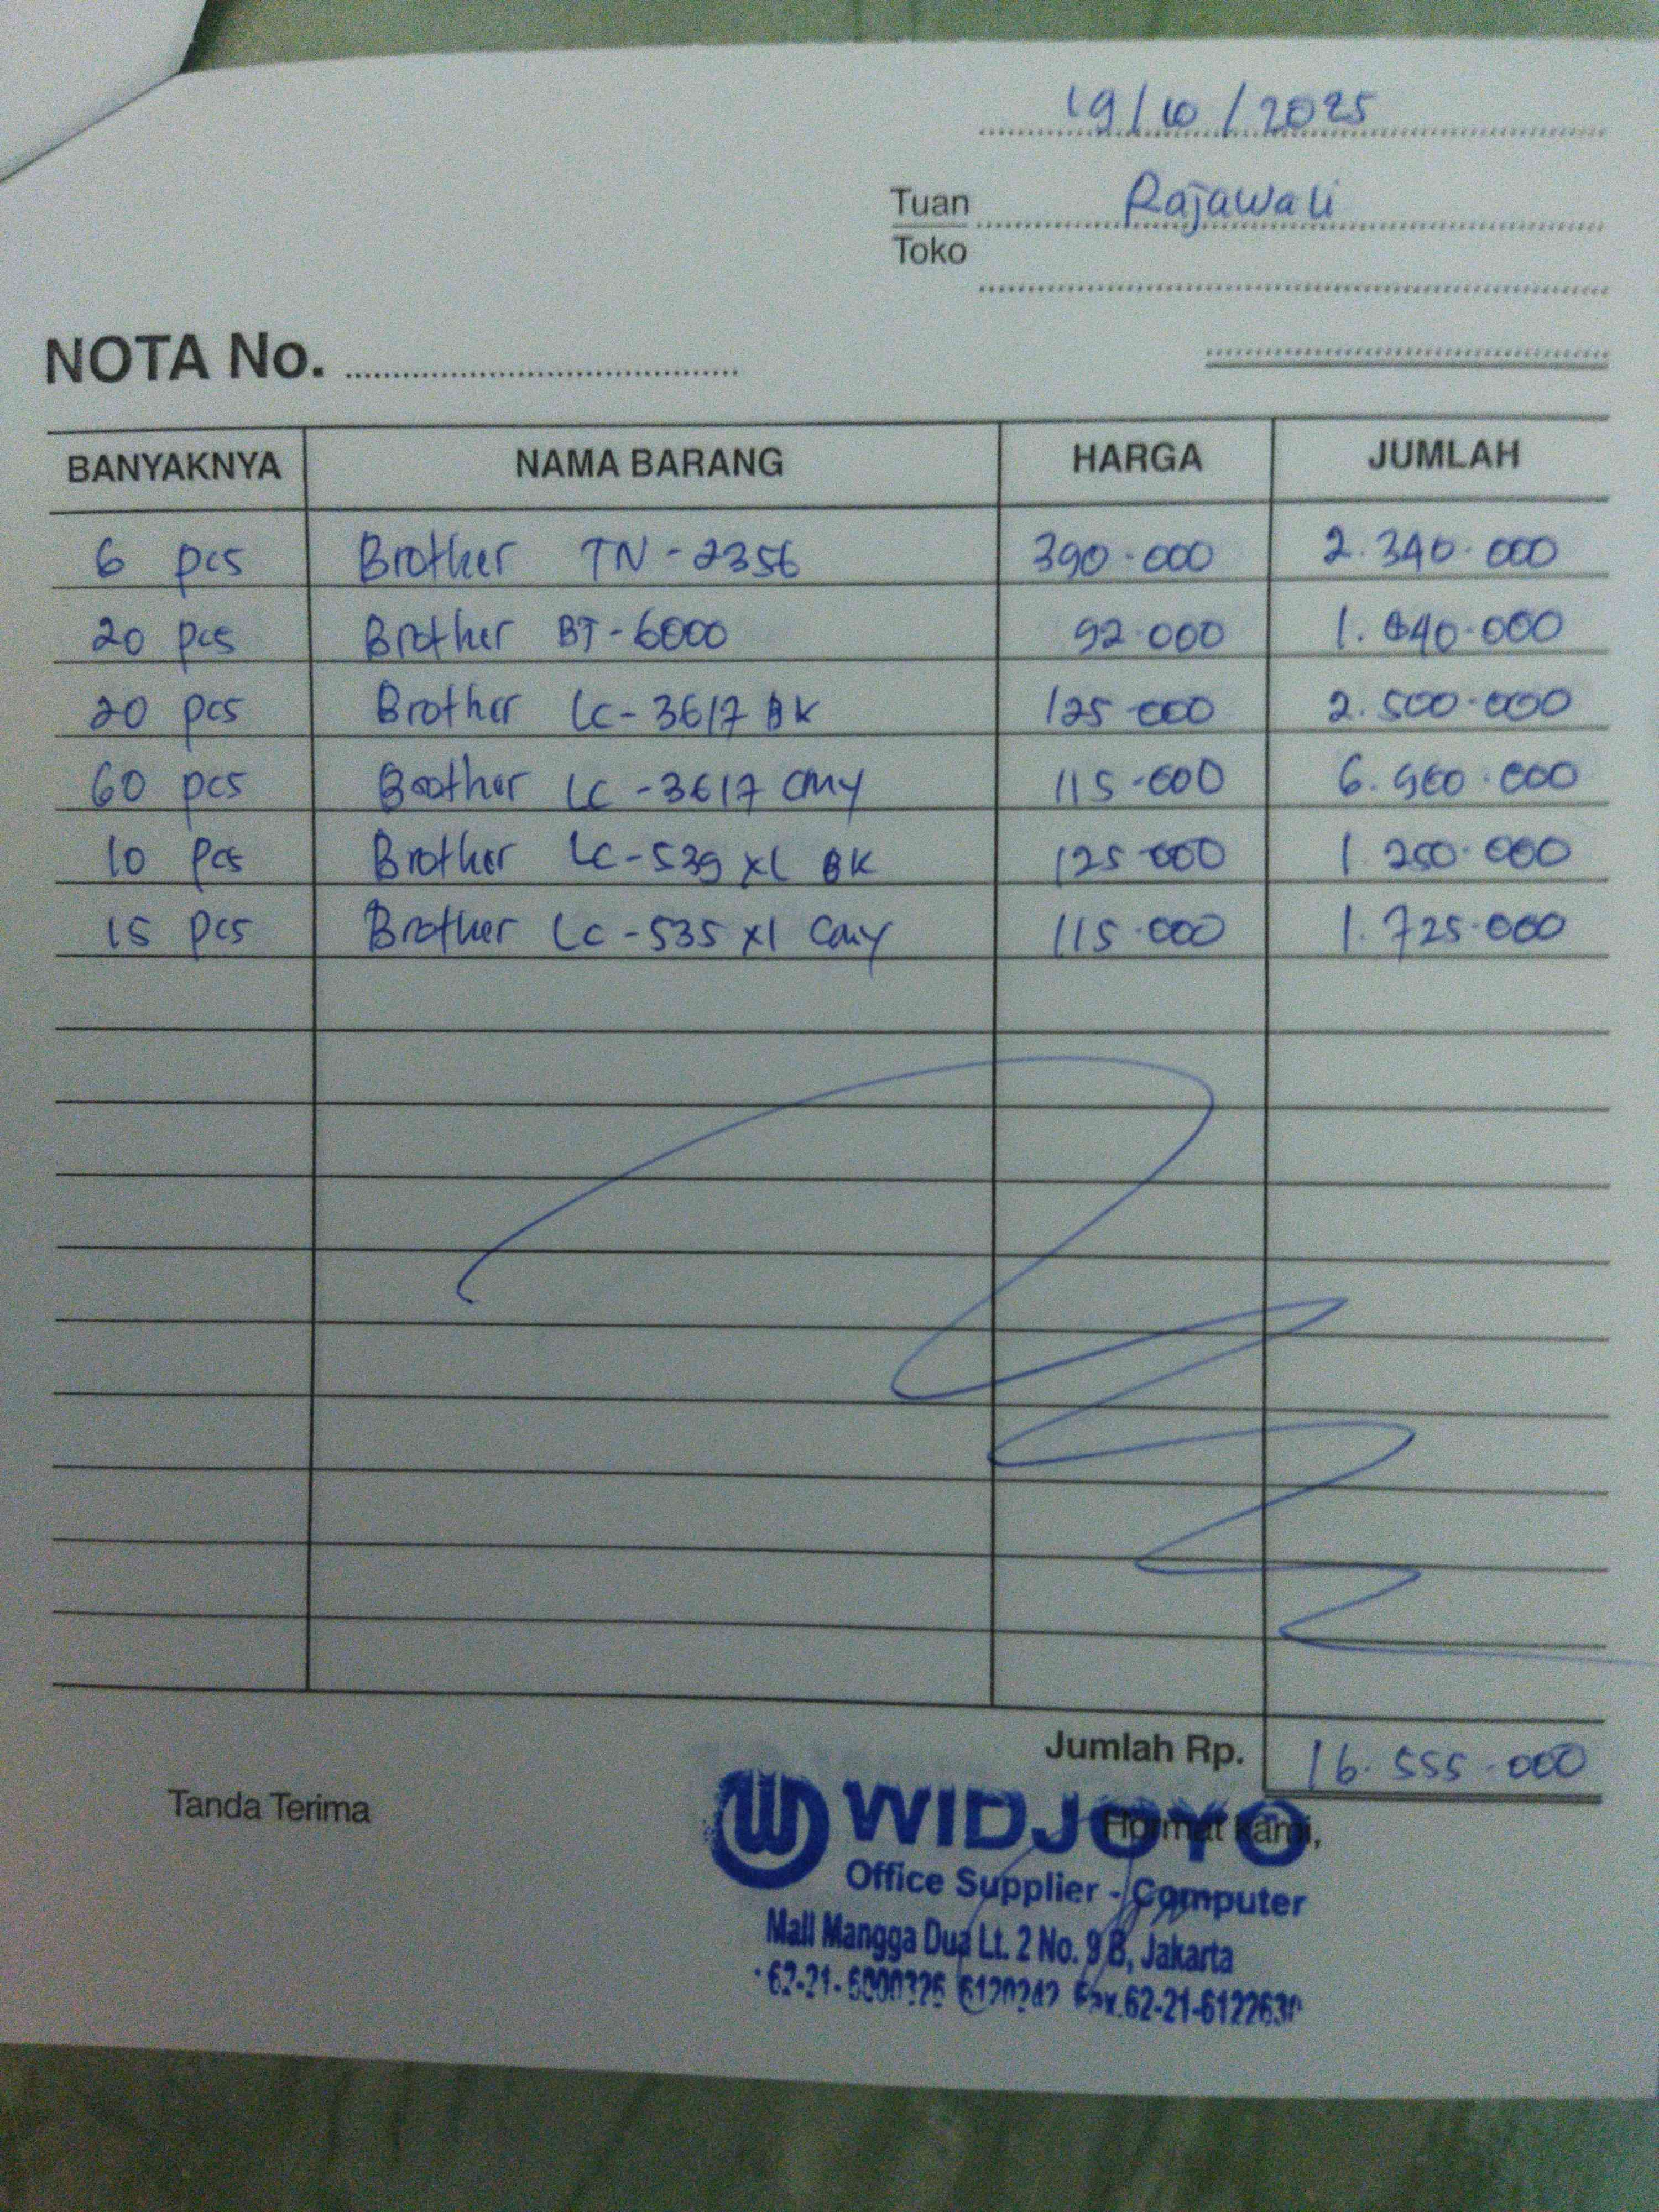 19/10/2025
Tuan Rajawali
Toko
NOTA No.
BANYAKNYA NAMA BARANG HARGA JUMLAH
6 pcs Brother TN-2356 390.000 2.340.000
20 pcs Brother BT-6000 92.000 1.840.000
20 pcs Brother LC-3617 BK 125.000 2.500.000
60 pcs Brother LC-3617 CMY 115.000 6.900.000
10 pcs Brother LC-539 XL BK 125.000 1.250.000
15 pcs Brother LC-535 XL CMY 115.000 1.725.000
Jumlah Rp. 16.555.000
Tanda Terima Hormat kami,
WIDJOYO
Office Supplier - Computer
Mall Mangga Dua Lt. 2 No. 9 B, Jakarta
62-21- 6120242 Fax.62-21-